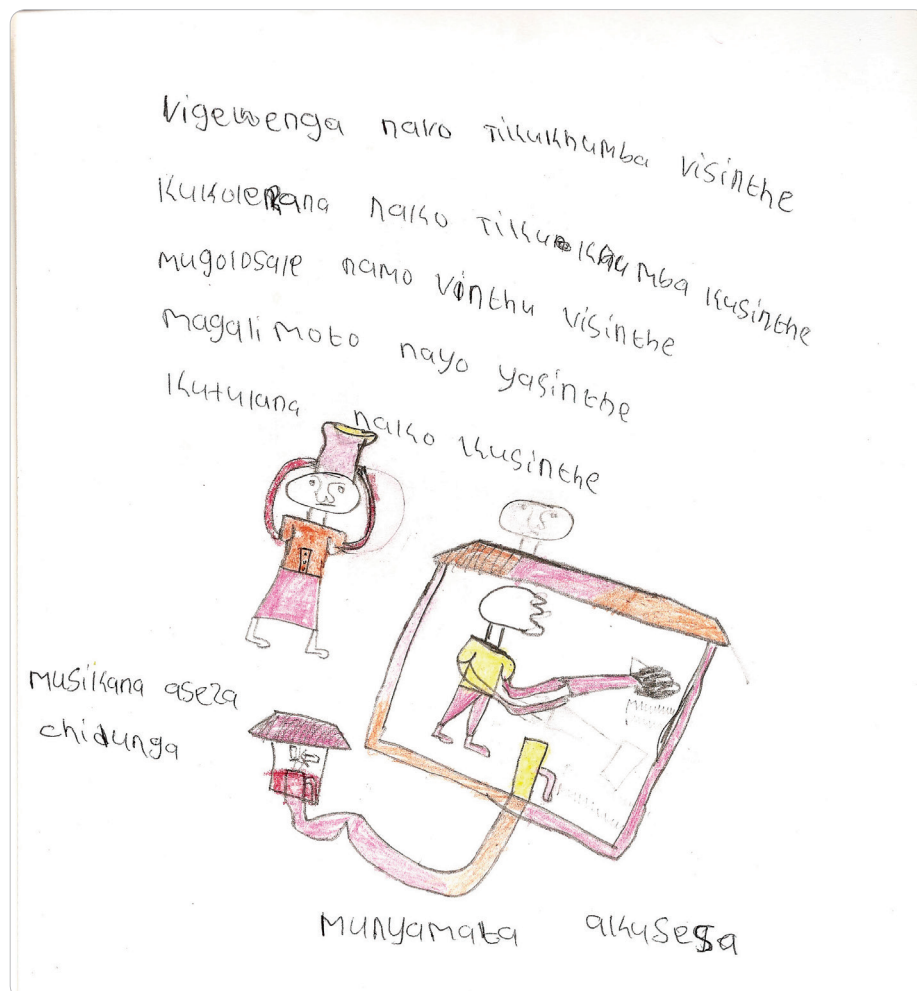 Vigewenga navo Tikukhumba visinthe
Kukolerana nako Tikukhumba kusinthe
mugolosale namo vinthu visinthe
magalimoto nayo yasinthe
kutulana nako kusinthe
musikana aseza
chidunga
munyamata akusesa